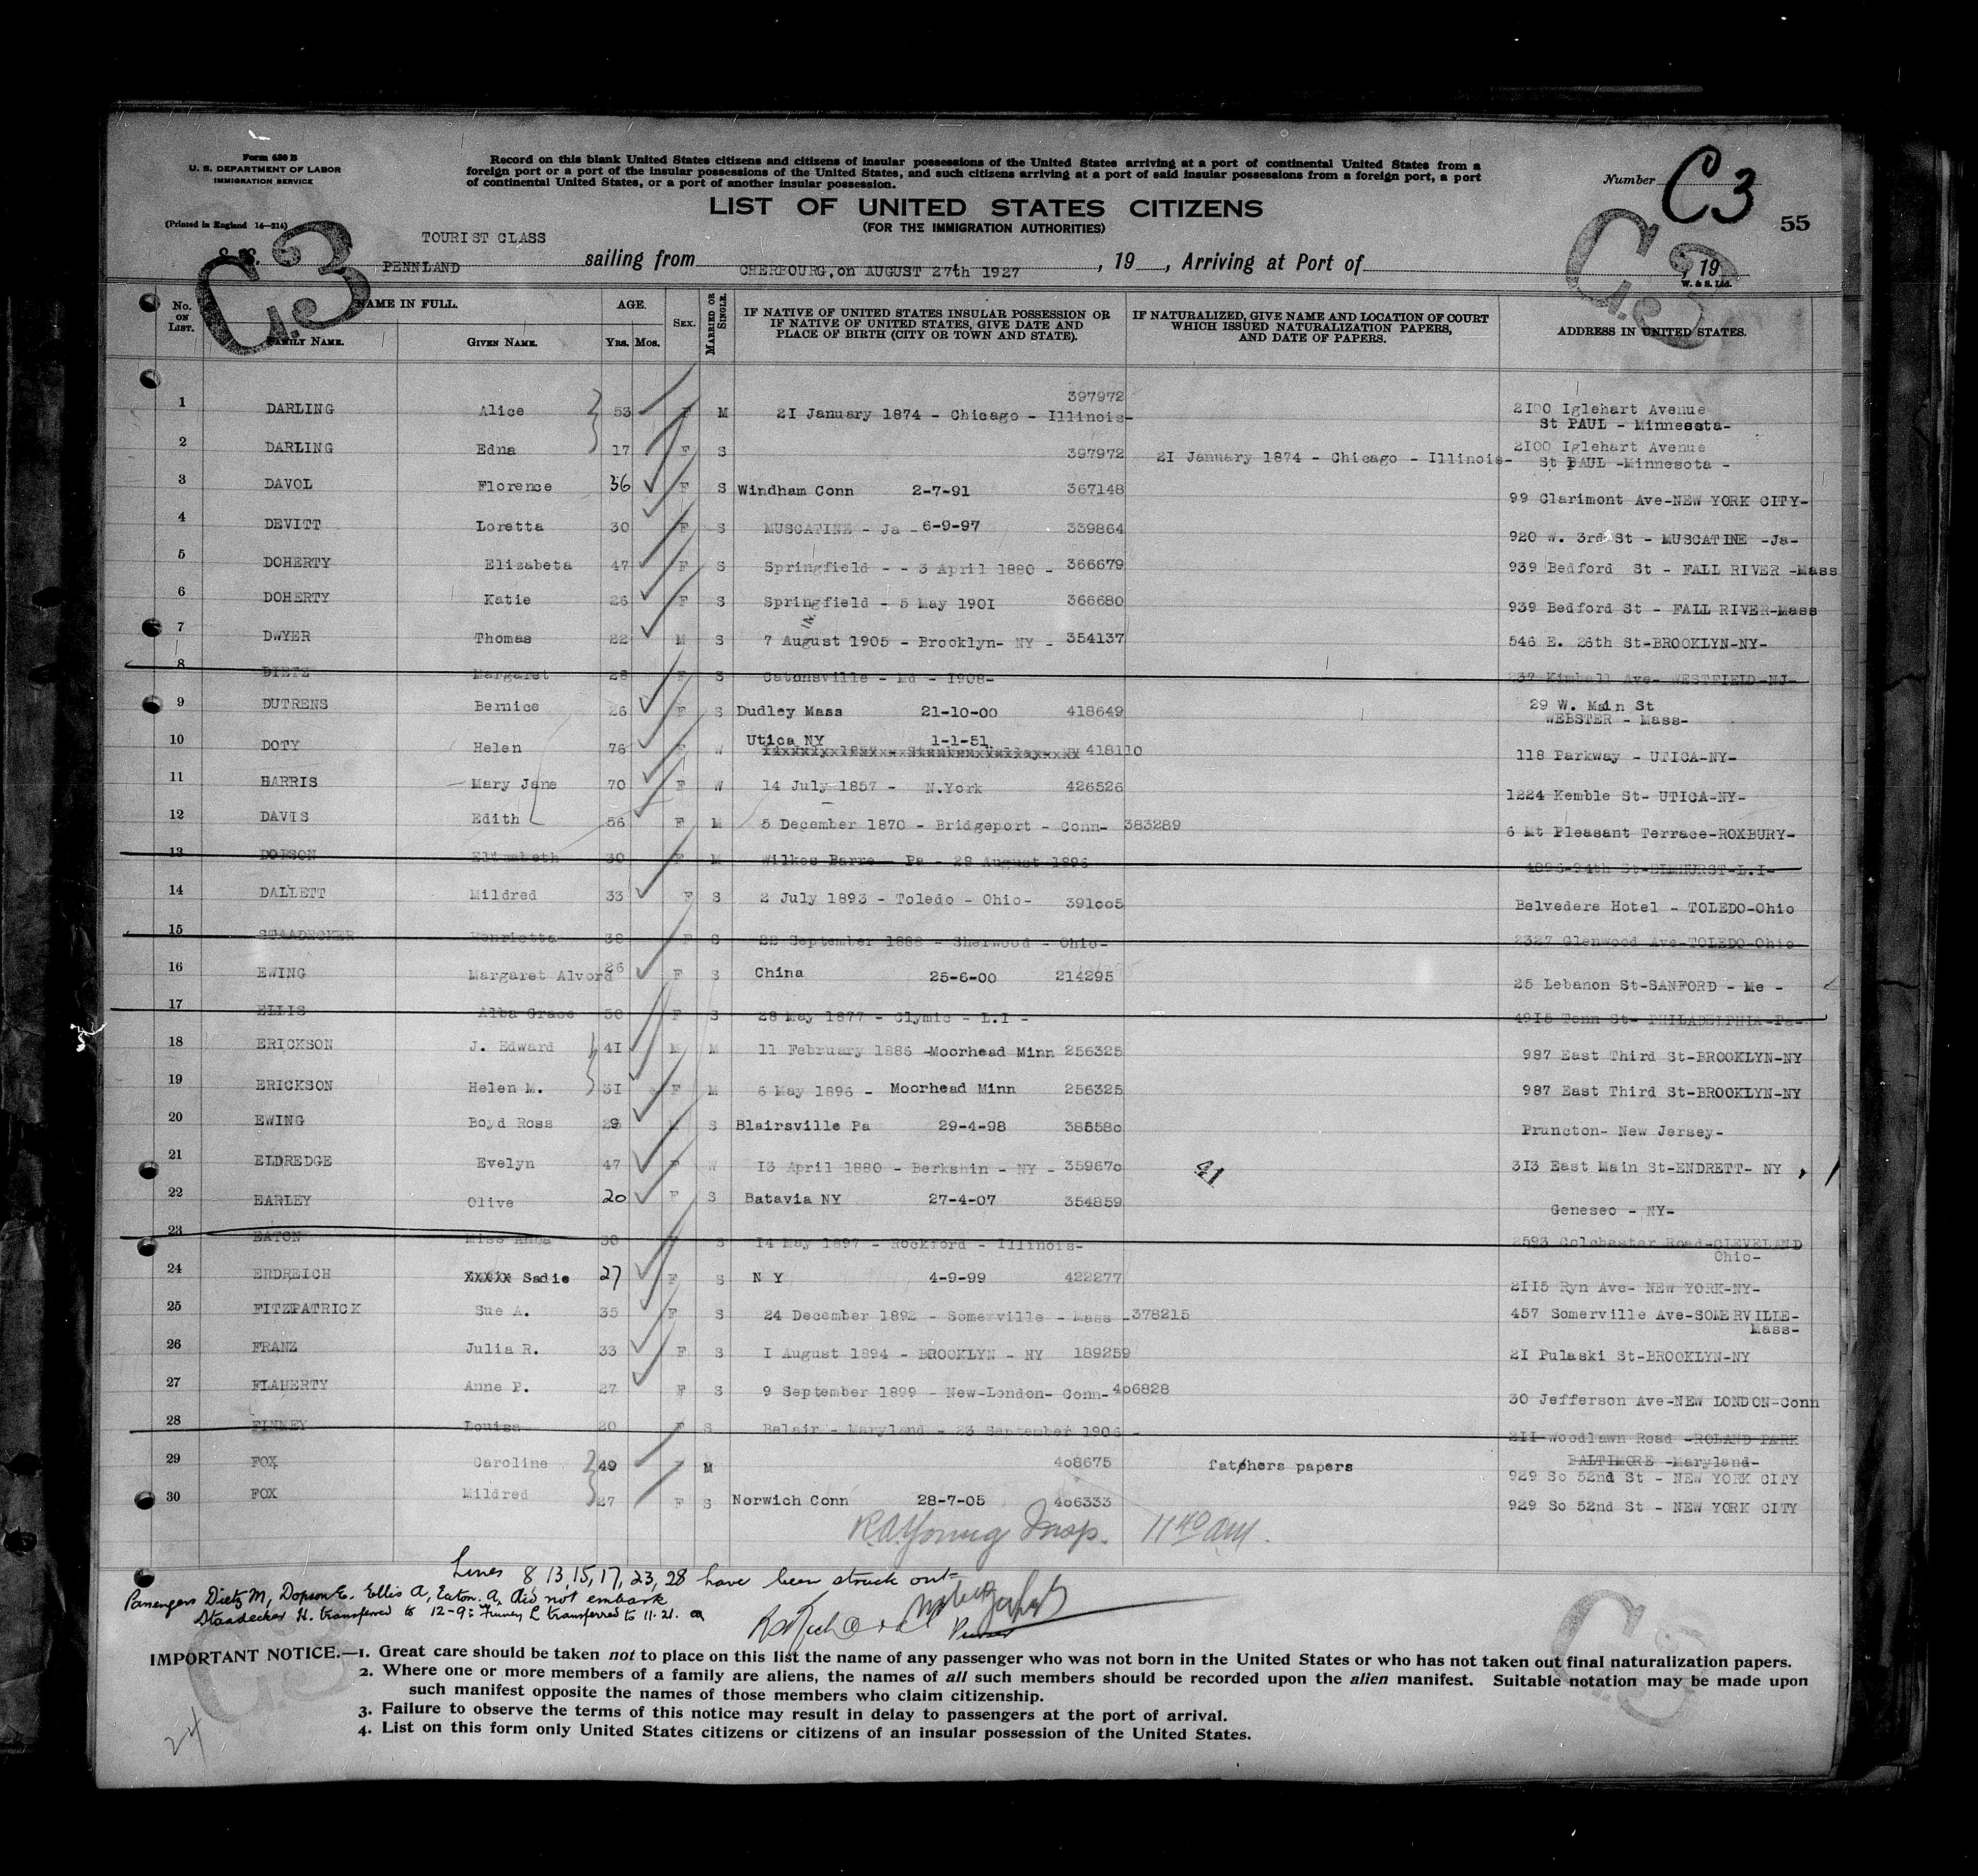 Form 630 B
U. S. DEPARTMENT OF LABOR
IMMIGRATION SERVICE
(Printed in England 14—214)
Record on this blank United States citizens and citizens of insular possessions of the United States arriving at a port of continental United States from a
foreign port or a port of the insular possessions of the United States, and such citizens arriving at a port of said insular possessions from a foreign port, a port
of continental United States, or a port of another insular possession.
LIST OF UNITED STATES CITIZENS
(FOR THE IMMIGRATION AUTHORITIES)
Number C3
55
C.3
C.3
TOURIST CLASS
S.S. PENNLAND sailing from CHERBOURG, on AUGUST 27th 1927, 19 , Arriving at Port of , 19
W. & S. Ltd.
No. ON LIST. NAME IN FULL. FAMILY NAME. GIVEN NAME. AGE. YRS. MOS. SEX. MARRIED OR SINGLE. IF NATIVE OF UNITED STATES INSULAR POSSESSION OR IF NATIVE OF UNITED STATES, GIVE DATE AND PLACE OF BIRTH (CITY OR TOWN AND STATE). IF NATURALIZED, GIVE NAME AND LOCATION OF COURT WHICH ISSUED NATURALIZATION PAPERS, AND DATE OF PAPERS. ADDRESS IN UNITED STATES.
1 DARLING Alice 53 F M 21 January 1874 - Chicago - Illinois- 397972 2100 Iglehart Avenue
St PAUL - Minnesota-
2 DARLING Edna 17 F S 397972 21 January 1874 - Chicago - Illinois- 2100 Iglehart Avenue
St PAUL -Minnesota -
3 DAVOL Florence 36 F S Windham Conn 2-7-91 367148 99 Clarimont Ave-NEW YORK CITY-
4 DEVITT Loretta 30 F S MUSCATINE - Ja - 6-9-97 339864 920 W. 3rd St - MUSCATINE -Ja-
5 DOHERTY Elizabeta 47 F S Springfield - - 3 April 1880 - 366679 939 Bedford St - FALL RIVER -Mass
6 DOHERTY Katie 26 F S Springfield - 5 May 1901 366680 939 Bedford St - FALL RIVER-Mass
7 DWYER Thomas 22 M S 7 August 1905 - Brooklyn- NY - 354137 546 E. 26th St-BROOKLYN-NY-
8 DIETZ Margaret 28 F S Catonsville - Md - 1908- 237 Kimball Ave- WESTFIELD-NJ-
9 DUTRENS Bernice 26 F S Dudley Mass 21-10-00 418649 29 W. Main St
WEBSTER - Mass-
10 DOTY Helen 76 F W Utica NY 1-1-51 418110 118 Parkway - UTICA-NY-
11 HARRIS Mary Jane 70 F W 14 July 1857 - N.York 426526 1224 Kemble St- UTICA-NY-
12 DAVIS Edith 56 F M 5 December 1870 - Bridgeport - Conn- 383289 6 Mt Pleasant Terrace-ROXBURY-
13 DOPSON Elizabeth 30 F M Wilkes Barre - Pa - 29 August 1896 4896-94th St-ELMHURST-L.I-
14 DALLETT Mildred 33 F S 2 July 1893 - Toledo - Ohio- 391005 Belvedere Hotel - TOLEDO-Ohio
15 STAADECKER Henrietta 38 F S 22 September 1888 - Sherwood - Ohio- 2327 Glenwood Ave-TOLEDO-Ohio
16 EWING Margaret Alvord 26 F S China 25-6-00 214295 25 Lebanon St-SANFORD - Me -
17 ELLIS Alba Grace 50 F S 28 May 1877 - Clymic - L.I - 4915 Tenn St- PHILADELPHIA-Pa-
18 ERICKSON J. Edward 41 M M 11 February 1886 -Moorhead Minn 256325 987 East Third St-BROOKLYN-NY
19 ERICKSON Helen M. 31 F M 6 May 1896 - Moorhead Minn 256325 987 East Third St-BROOKLYN-NY
20 EWING Boyd Ross 29 S Blairsville Pa 29-4-98 385580 Pruncton- New Jersey-
21 ELDREDGE Evelyn 47 F W 13 April 1880 - Berkshin - NY - 359670 41 313 East Main St-ENDRETT- NY
22 EARLEY Olive 20 F S Batavia NY 27-4-07 354859 Geneseo - NY-
23 EATON Miss Anna 30 F S 14 May 1897 - Rockford - Illinois- 2593 Colchester Road-CLEVELAND
Ohio-
24 ERDREICH xxxxx Sadie 27 F S N Y 4-9-99 422277 2115 Ryn Ave- NEW YORK-NY-
25 FITZPATRICK Sue A. 35 F S 24 December 1892 - Somerville - Mass - 378215 457 Somerville Ave-SOMERVILLE-
Mass-
26 FRANZ Julia R. 33 F S 1 August 1894 - BROOKLYN - NY 189259 21 Pulaski St-BROOKLYN-NY
27 FLAHERTY Anne P. 27 F S 9 September 1899 - New-London- Conn- 406828 30 Jefferson Ave-NEW LONDON-Conn
28 FINNEY Louisa 20 F S Belair - Maryland - 23 September 1906 - 211 Woodlawn Road -ROLAND PARK
BALTIMORE -Maryland-
29 FOX Caroline 49 F M 408675 fathers papers 929 So 52nd St - NEW YORK CITY
30 FOX Mildred 27 F S Norwich Conn 28-7-05 406333 929 So 52nd St - NEW YORK CITY
R.A. Young Insp. 11 40 AM.
Lines 8 13, 15, 17, 23, 28 have been struck out
Passengers Dietz M, Dopson E. Ellis A, Eaton. A, did not embark
Staadecker H. transferred to 12-9: Finney L transferred to 11. 21.
Purser
IMPORTANT NOTICE.—1. Great care should be taken not to place on this list the name of any passenger who was not born in the United States or who has not taken out final naturalization papers.
2. Where one or more members of a family are aliens, the names of all such members should be recorded upon the alien manifest. Suitable notation may be made upon
such manifest opposite the names of those members who claim citizenship.
3. Failure to observe the terms of this notice may result in delay to passengers at the port of arrival.
4. List on this form only United States citizens or citizens of an insular possession of the United States.
C.3
C.3
24